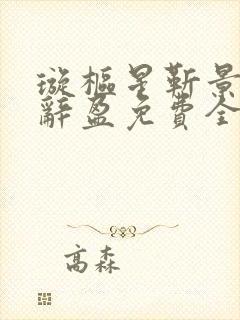 璇樞星靳景
辭盈免費全
高森